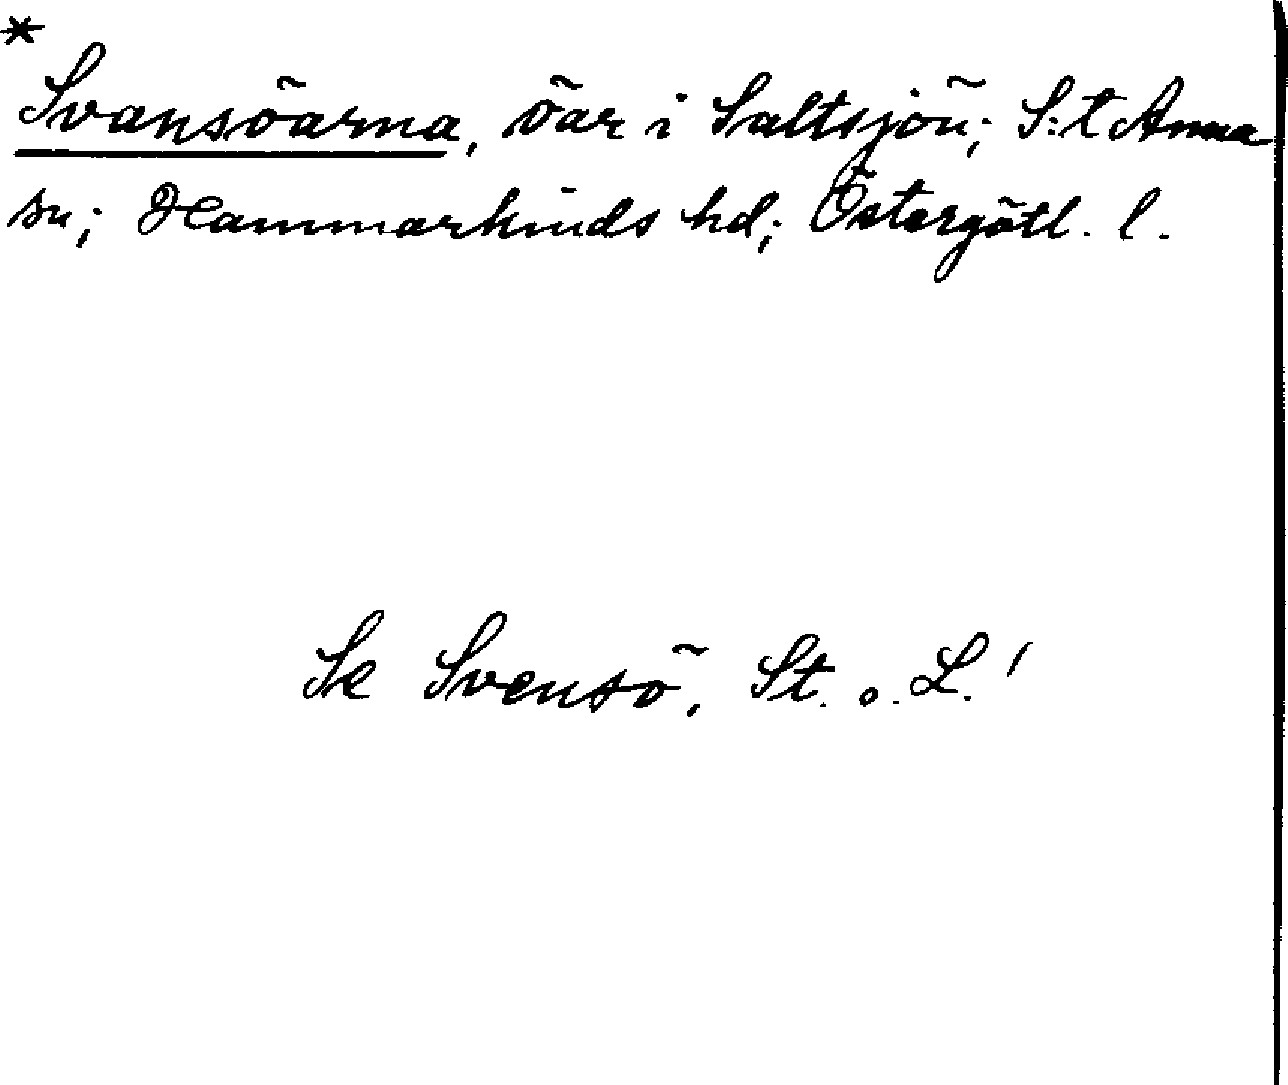 *
Svansöarna, öar i Saltsjön; S:t Anna
sn; Hammarkinds hd; Östergötl. l.
Se Svensö, St. o. L.!